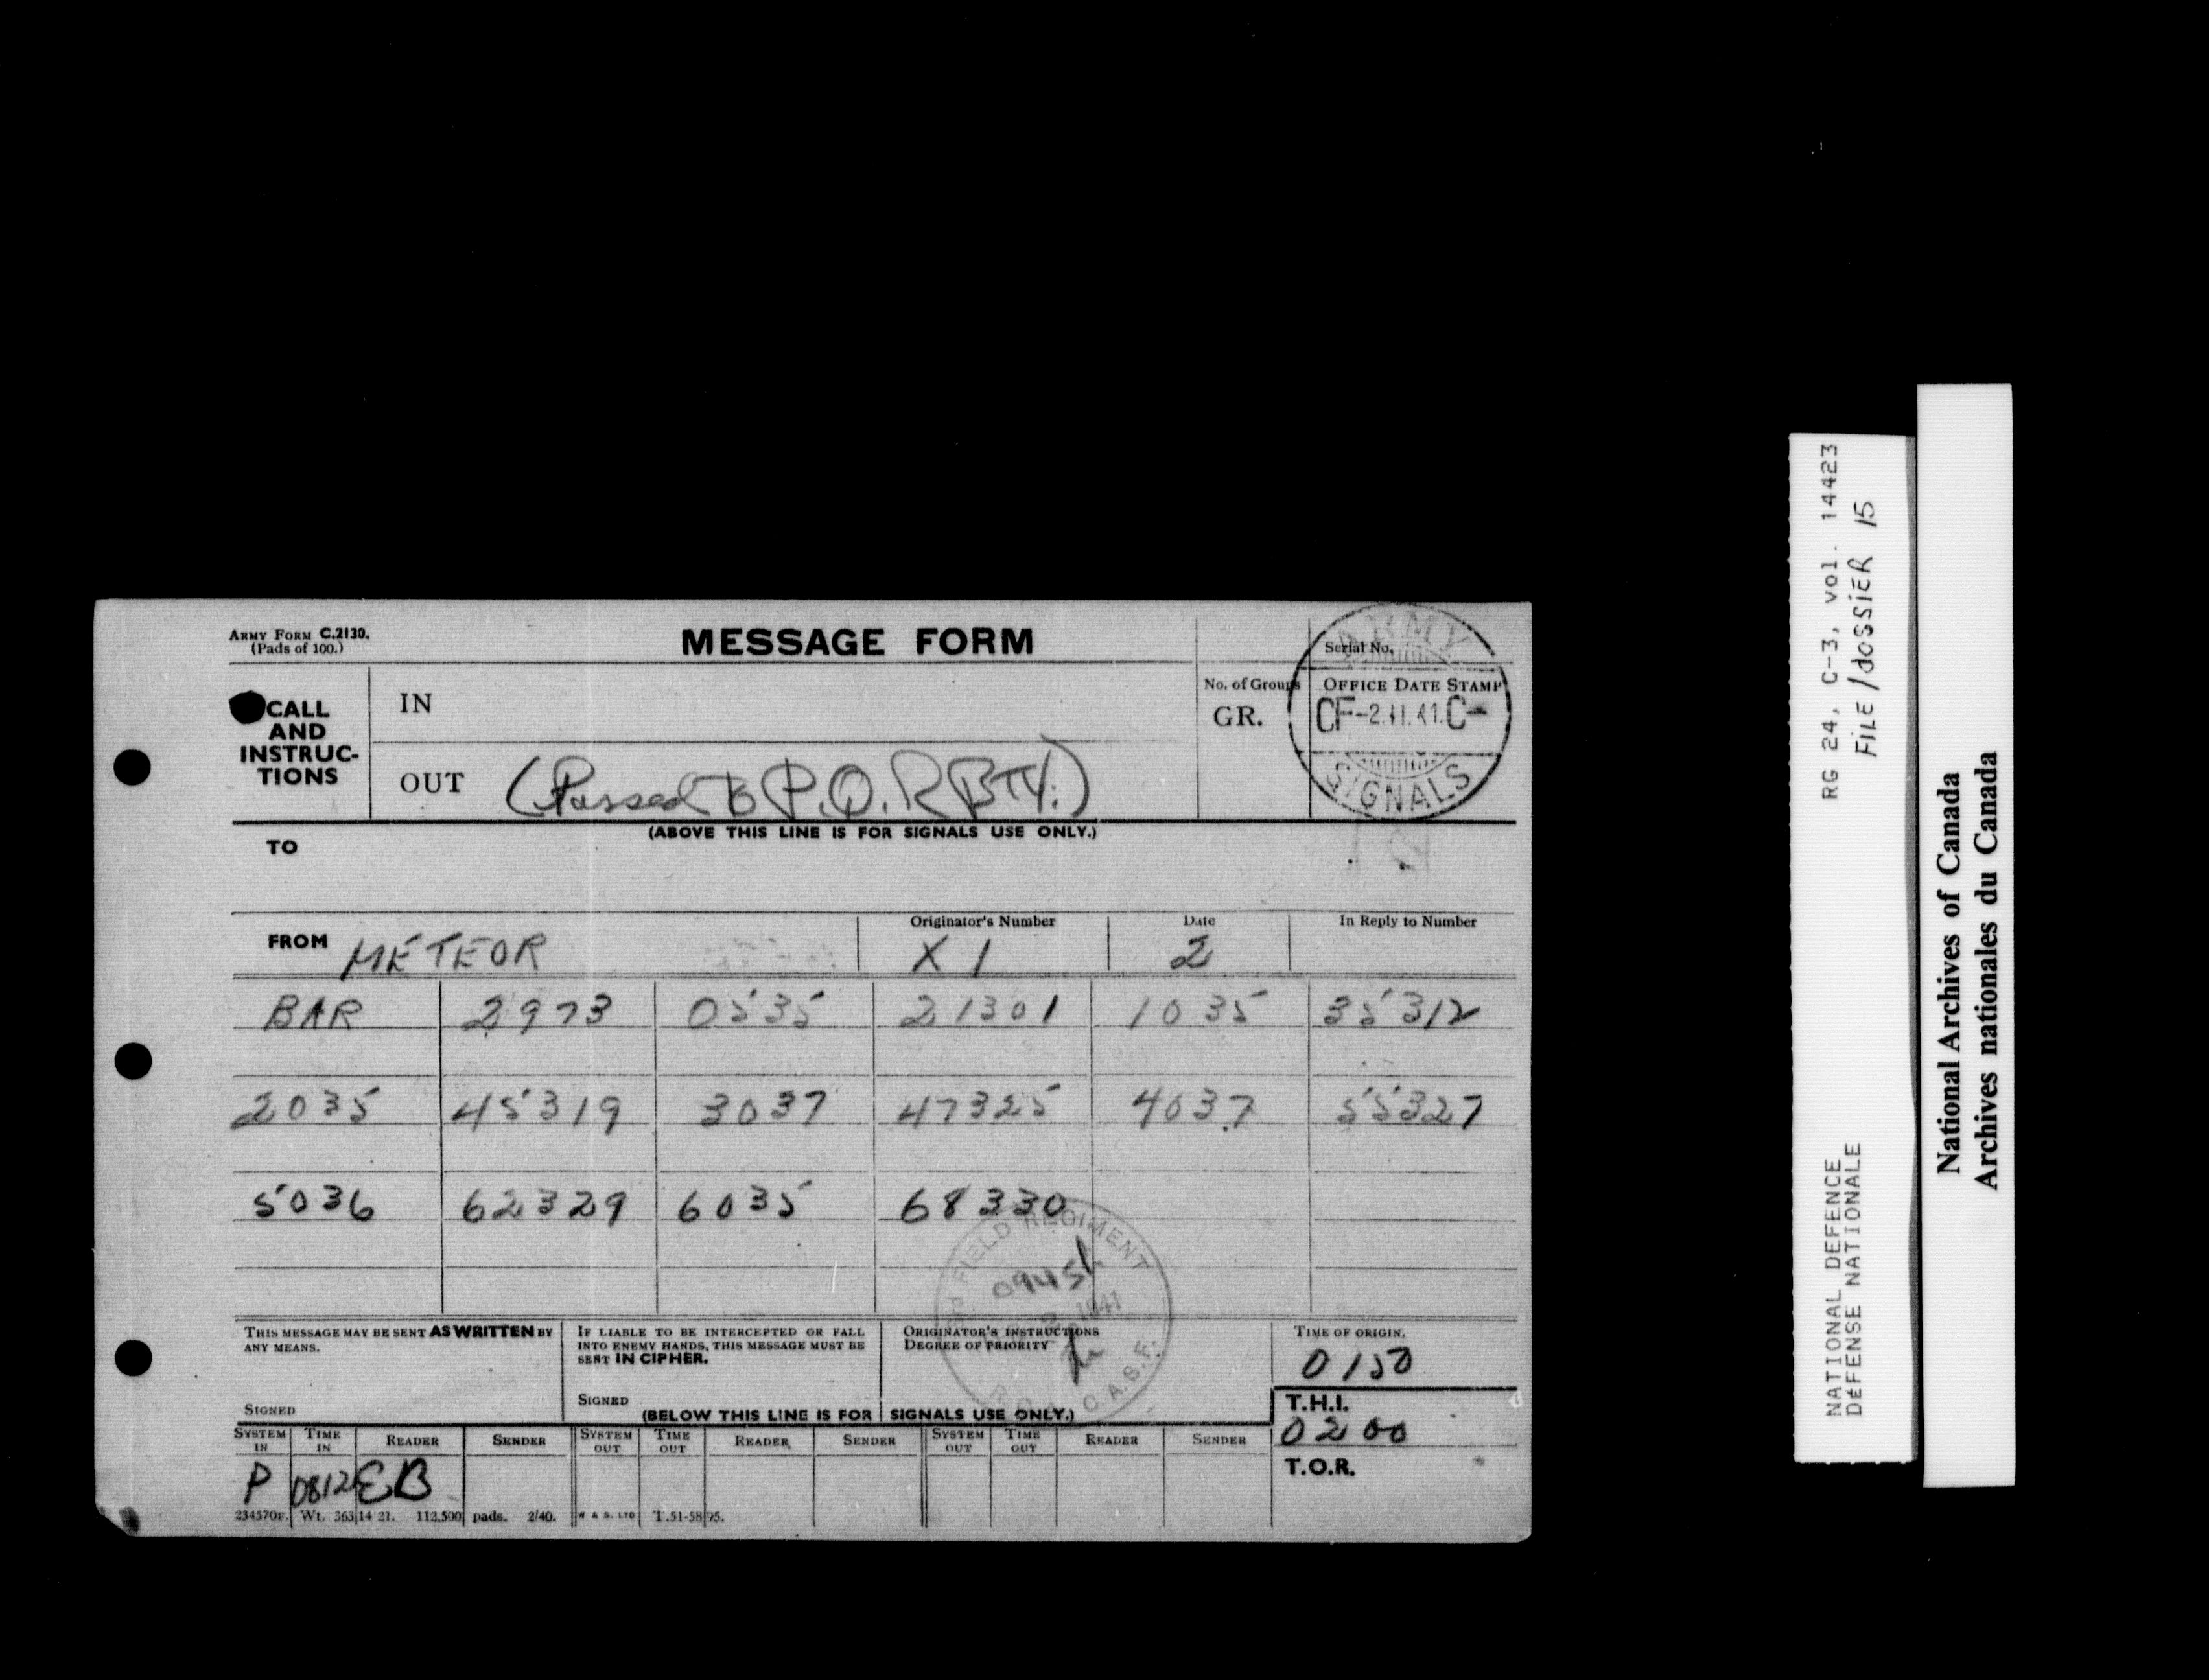 ARMY FORM C.2130.
(Pads of 100.)
MESSAGE FORM
Serial No.
CALL AND INSTRUC-TIONS
IN
No. of Groups
GR.
OFFICE DATE STAMP
ARMY
CF-2.11.41.C-
SIGNALS
OUT (Passed to P.Q.R BTY.)
(ABOVE THIS LINE IS FOR SIGNALS USE ONLY.)
TO
FROM METEOR
Originator's Number X 1
Date 2
In Reply to Number
BAR 2973 0535 21301 1035 35312
2035 45319 3037 47325 4037 55327
5036 62329 6035 68330
3rd FIELD REGIMENT
0945h
2 1941
R.C.A. C.A.S.F.
THIS MESSAGE MAY BE SENT AS WRITTEN BY ANY MEANS.
SIGNED
IF LIABLE TO BE INTERCEPTED OR FALL INTO ENEMY HANDS, THIS MESSAGE MUST BE SENT IN CIPHER.
SIGNED
ORIGINATOR'S INSTRUCTIONS
DEGREE OF PRIORITY
TIME OF ORIGIN.
0150
T.H.I.
0200
T.O.R.
(BELOW THIS LINE IS FOR SIGNALS USE ONLY.)
SYSTEM IN TIME IN READER SENDER SYSTEM OUT TIME OUT READER SENDER SYSTEM OUT TIME OUT READER SENDER
P 0812 EB
234570F. Wt. 36314 21. 112,500 pads. 2/40. W & S. LTD T.51-5895.
RG 24, C-3, vol. 14423
FILE/dOSSiER 15
NATIONAL DEFENCE
DEFENSE NATIONALE
National Archives of Canada
Archives nationales du Canada